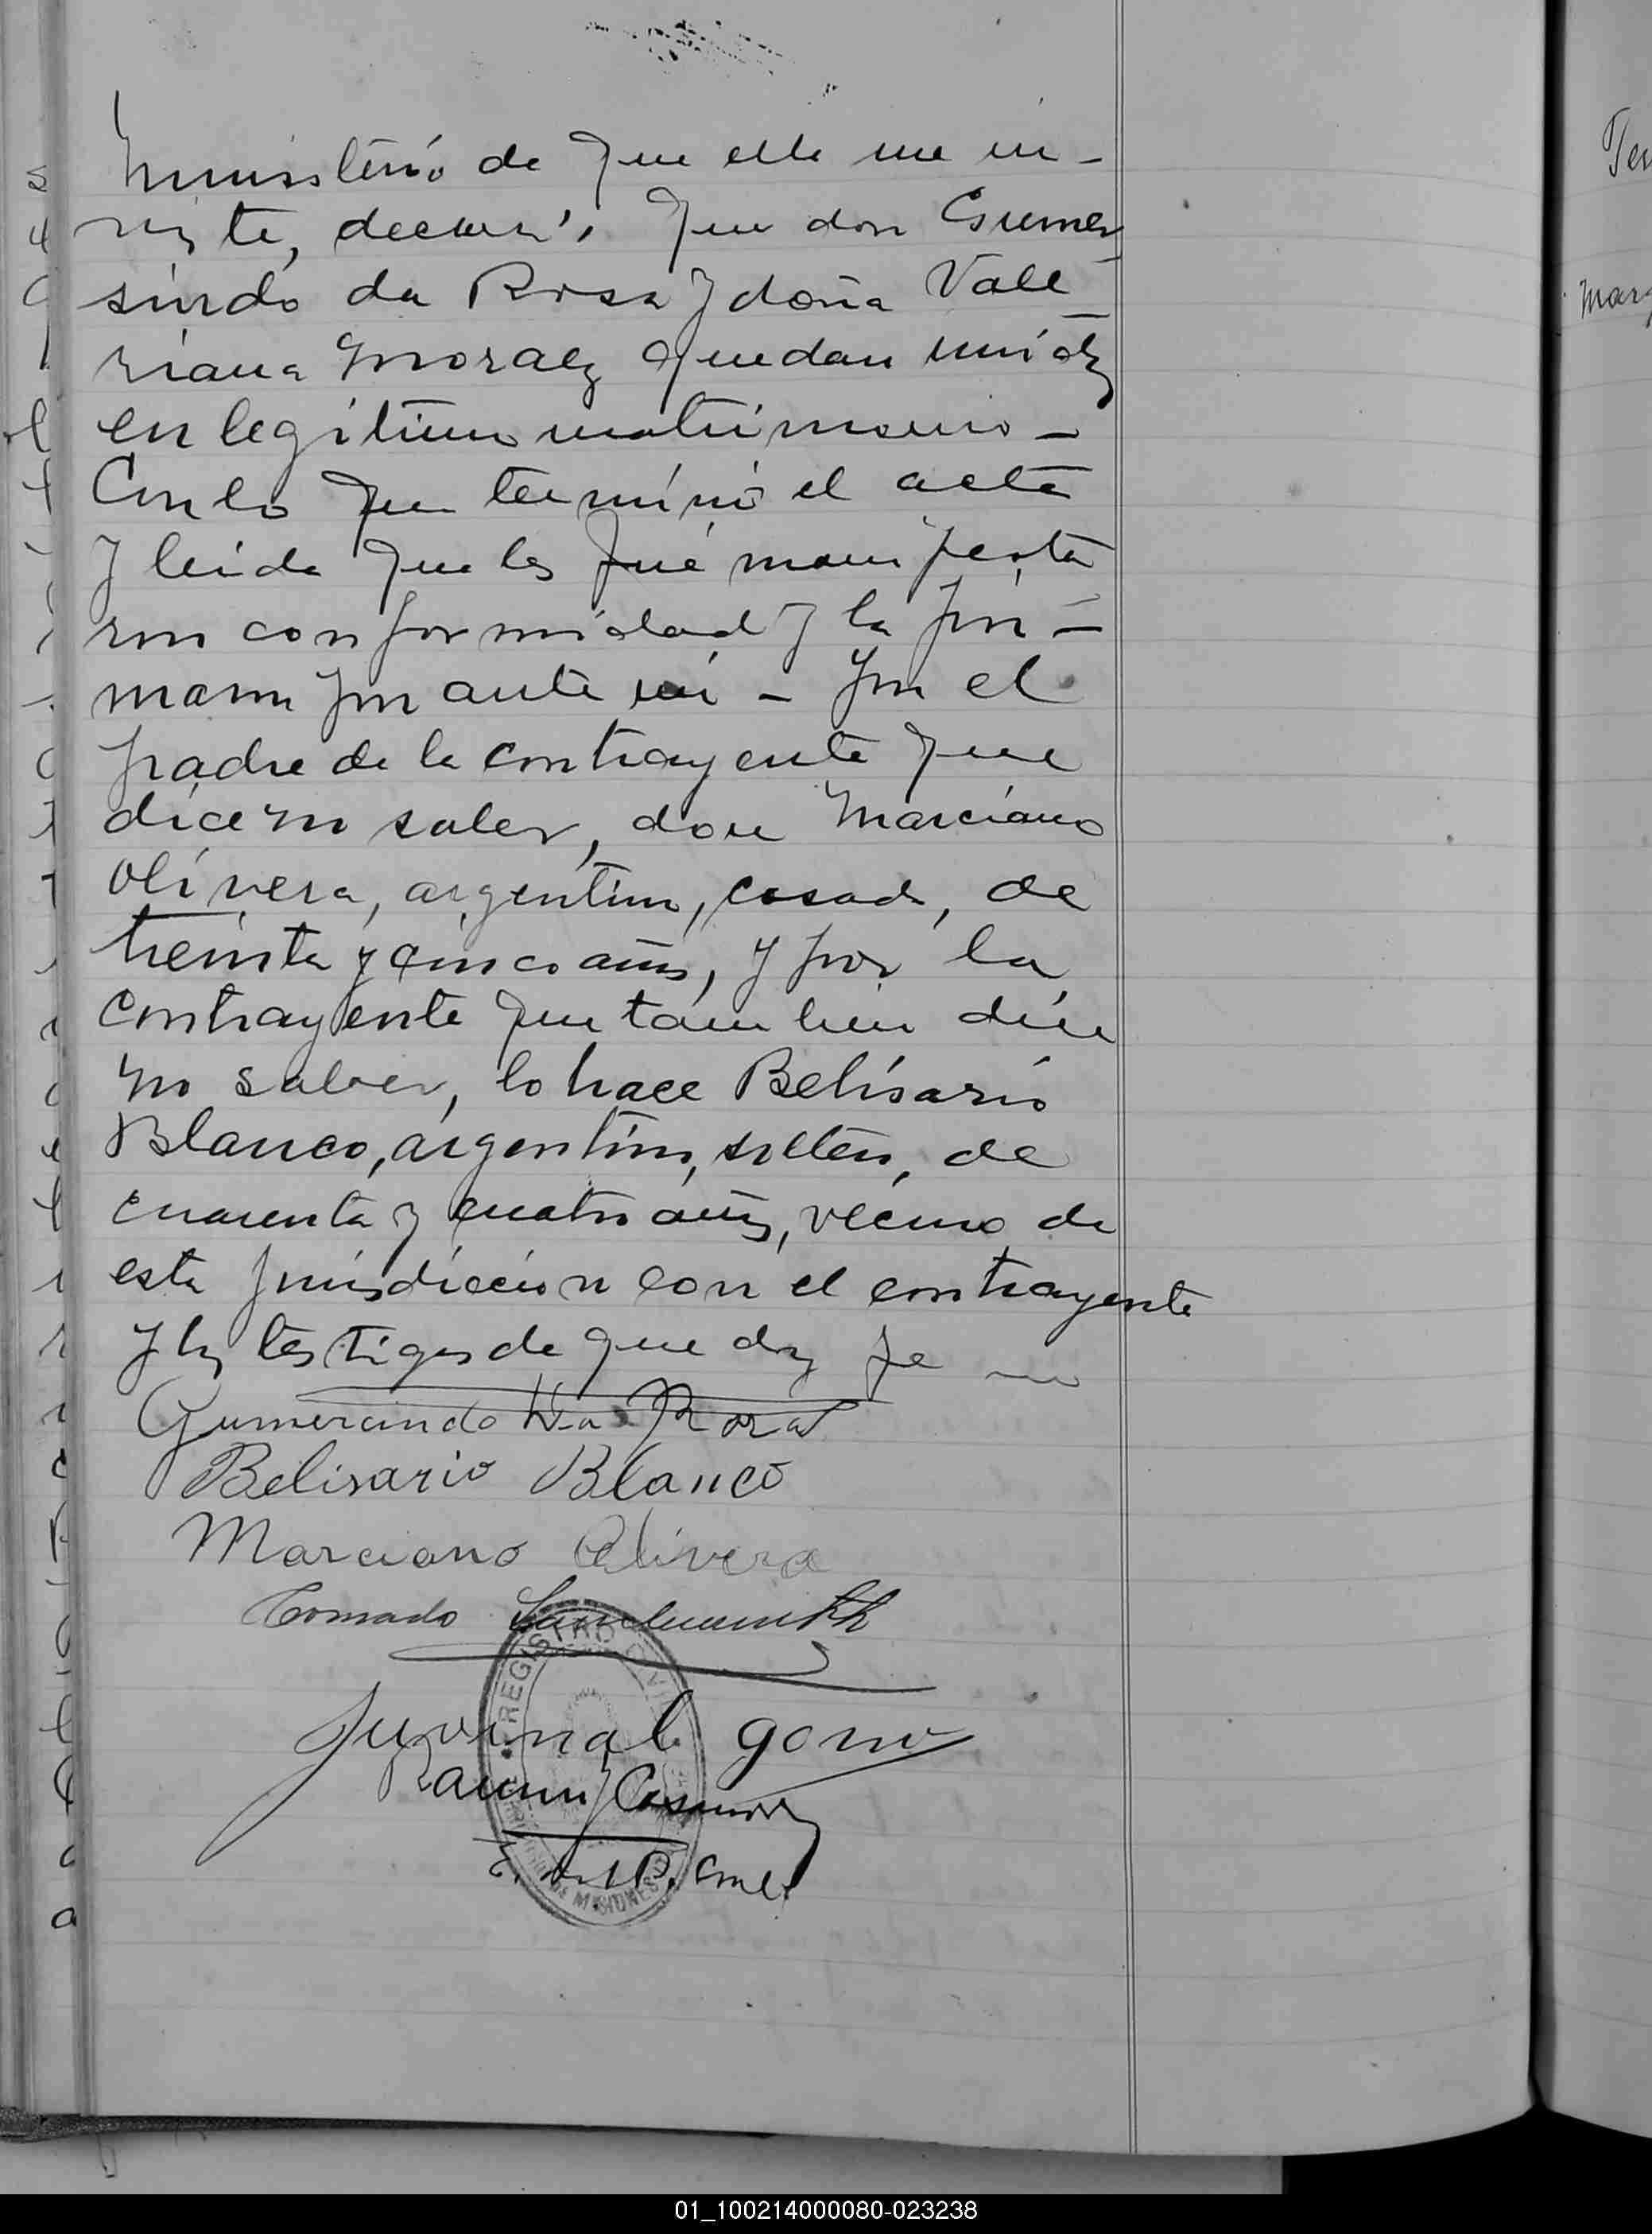 Ministerio de que ella me in-
viste, declaré, que don Gumer
sindo da Rosa y doña Vale-
riana Moralez quedan unidos
en legítimo matrimonio -
Con lo que terminó el acta
y leida que les fué manifesta
ron conformidad y la fir-
maron por ante mi - Por el
padre de la contrayente que
dice no saber, don Marciano
Olivera, argentino, casado, de
treinta y cinco años, y por la
contrayente que tambien dice
no saber, lo hace Belisario
Blanco, argentino, soltero, de
cuarenta y cuatro años, vecino de
esta jurisdiccion con el contrayente
y los testigos de que doy fe
Gumercindo da Rosa
Belisario Blanco
Marciano Olivera
Conrado
REGISTRO CIVIL
Juvinal
Ramon
E. del R. Civil
DE MISIONES
Ten
Marg
01_100214000080-023238